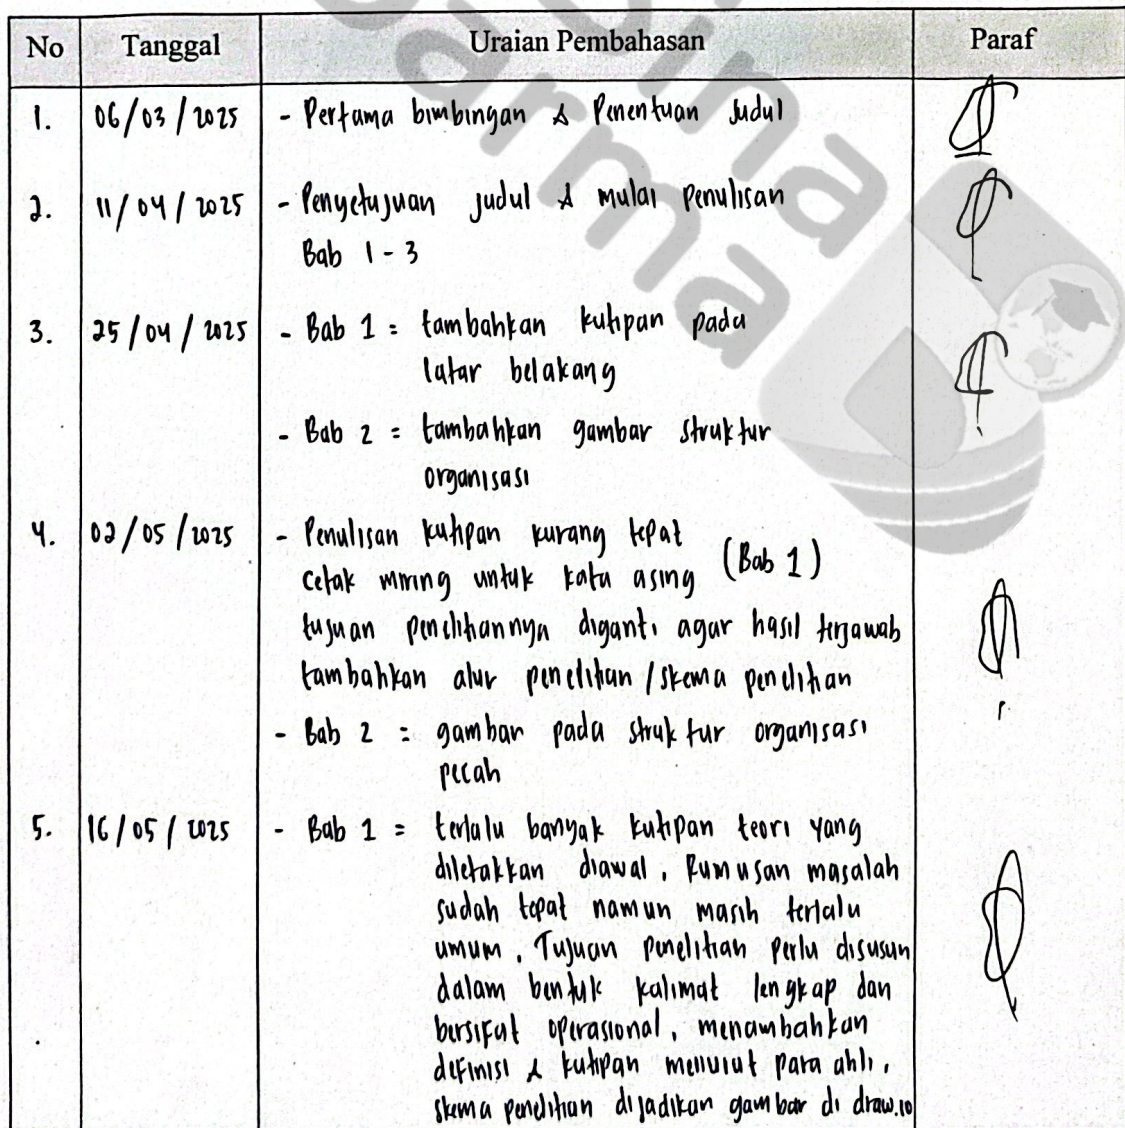 Bina
Darma
No Tanggal Uraian Pembahasan Paraf
1. 06/03/2025 - Pertama bimbingan & Penentuan Judul
2. 11/04/2025 - Penyetujuan judul & mulai penulisan
Bab 1 - 3
3. 25/04/2025 - Bab 1 = tambahkan kutipan pada
latar belakang
- Bab 2 = tambahkan gambar struktur
organisasi
4. 02/05/2025 - Penulisan kutipan kurang tepat
cetak miring untuk kata asing (Bab 1)
tujuan penelitiannya diganti agar hasil terjawab
tambahkan alur penelitian / skema penelitian
- Bab 2 = gambar pada struktur organisasi
pecah
5. 16/05/2025 - Bab 1 = terlalu banyak kutipan teori yang
diletakkan diawal, Rumusan masalah
sudah tepat namun masih terlalu
umum, Tujuan penelitian perlu disusun
dalam bentuk kalimat lengkap dan
bersifat operasional, menambahkan
definisi & kutipan menurut para ahli,
skema penelitian dijadikan gambar di draw.io